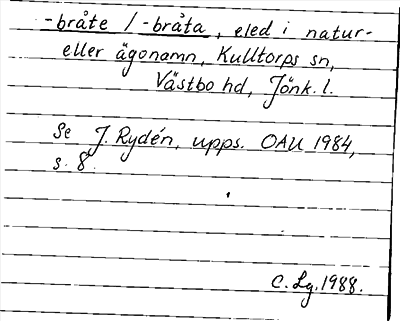 -bråte / -bråta, eled i natur-
eller ägonamn, Kulltorps sn,
Västbo hd, Jönk. l.
Se J. Rydén, upps. OAU 1984,
s. 8.
C. Lg. 1988.